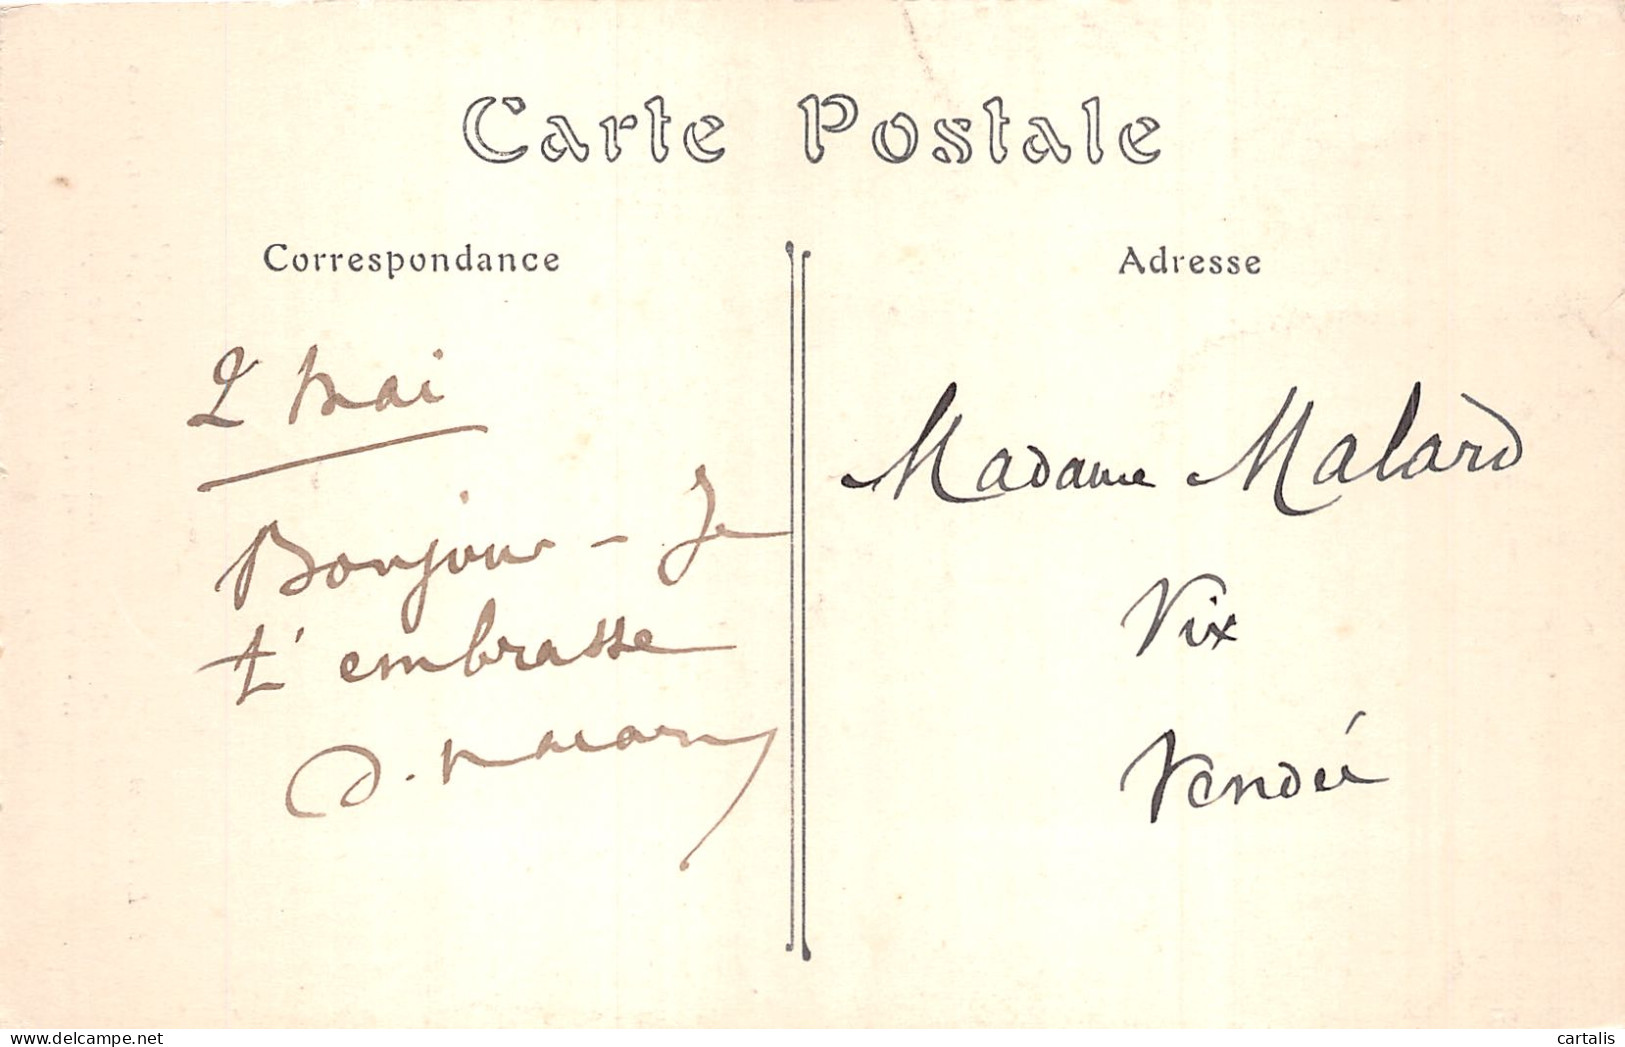 Carte Postale
Correspondance
2 Mai
Bonjour – Je
t'embrasse
D.
Adresse
Madame Malard
Vix
Vendée
cartalis
delcampe.net